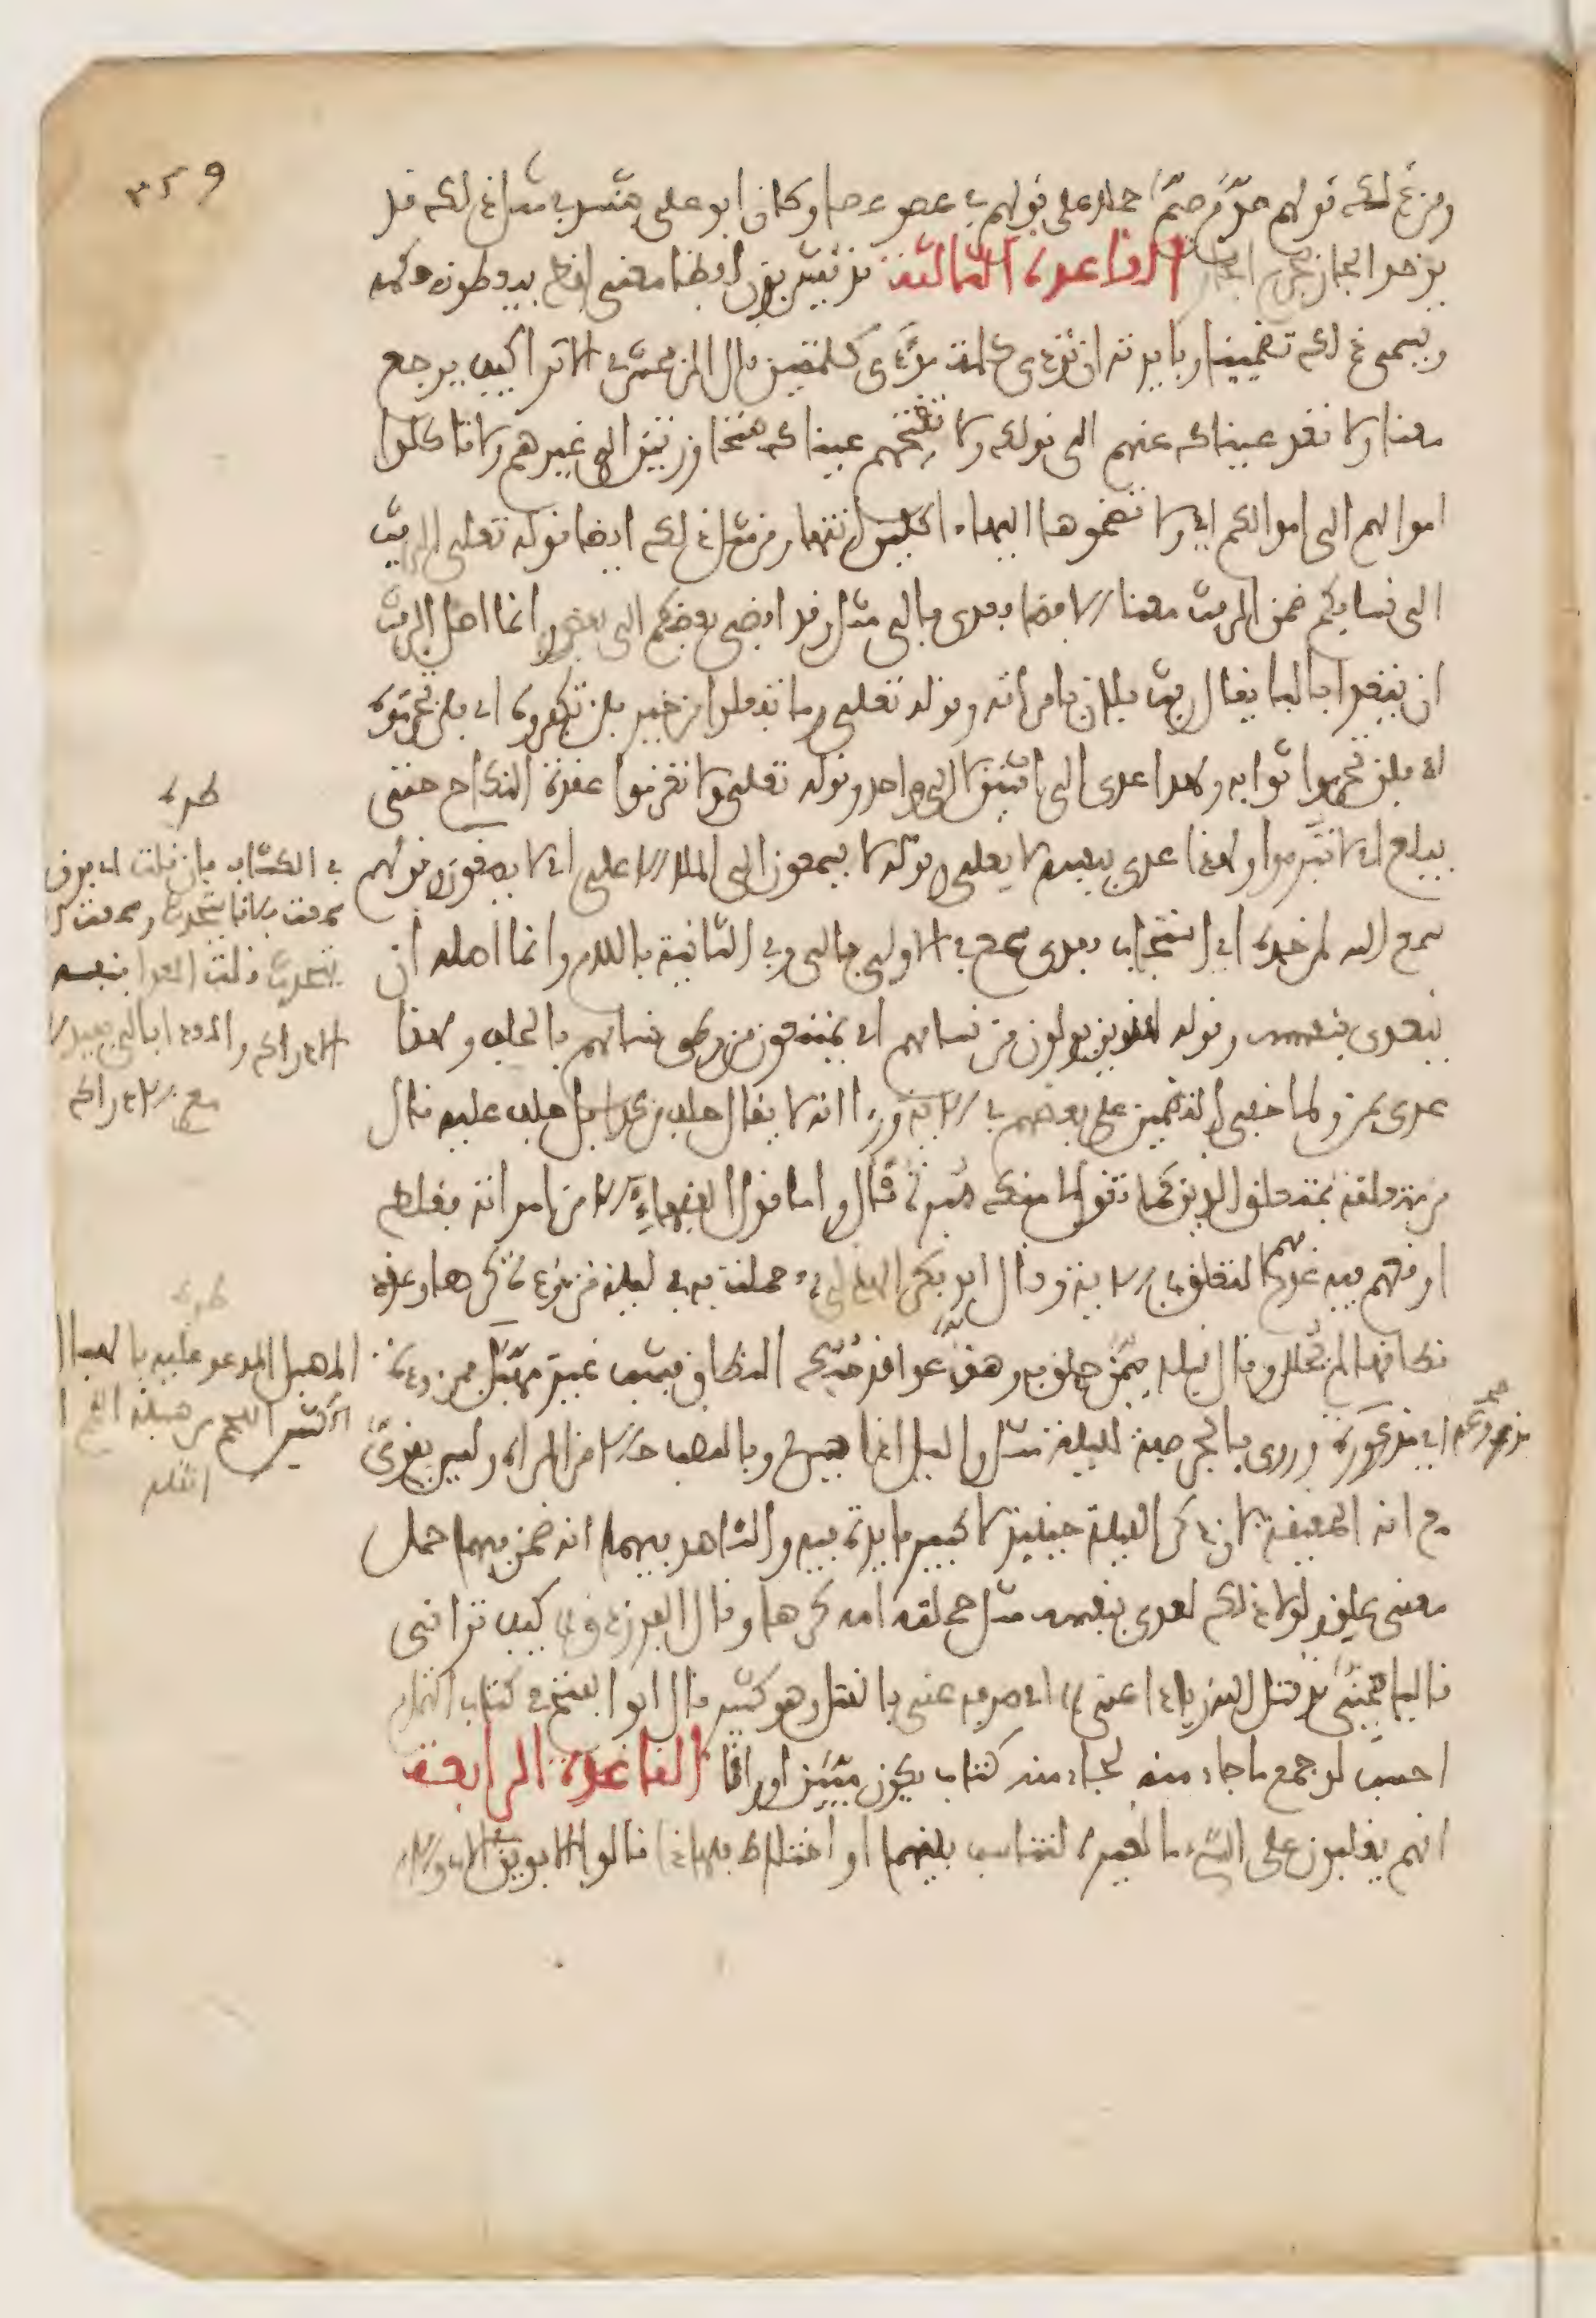 ٣٥٩
ومن ذلك قولهم هذا حملا على قولهم في عصو عصا وكان ابو علي ينشد في مثل ذلك قد
يوخذ الجار بجرم الجار القاعدة الثالثة قد يشربون لفظا معنى لفظ فيعطونه حكمه
ويسمى ذلك تضمينا وفايدته ان تودي كلمة مودى كلمتين قال الزمخشري الا ترا كيف يرجع
معنا ولا تعد عيناك عنهم الى قولك ولا تقتحم عيناك متجاوزتين الى غيرهم ولا تاكلوا
اموالهم الى اموالكم اي ولا تضموها اليها اكلين انتها ومن مثل ذلك ايضا قوله تعلى الرفث
الى نسايكم ضمن الرفث معنا الافضا فعدي بالى مثل وقد افضى بعضكم الى بعض وانما اصل الرفث
ان يتعدا بالبا يقال رفث فلان بامراته وقوله تعلى وما تفعلوا من خير فلن تكفروه اي فلن تحرموه
اي فلن تحرموا ثوابه ولهذا عدي الى اثنين لا الى واحد وقوله تعلى ولا تعزموا عقدة النكاح حتى
يبلغ اي لا تنووا ولهذا عدي بنفسه لا بعلى وقوله لا يسمعون الى الملإ الاعلى اي لا يصغون وقولهم
سمع الله لمن حمده اي استجاب فعدي يسمع في الاولى بالى وفي الثانية باللام وانما اصله ان
يتعدى بنفسه وقوله للذين يولون من نسايهم اي يمتنعون من وطئ نسايهم بالحلف ولهذا
عدي بمن ولما خفي التضمين على بعضهم في الاية ورءا انه لا يقال حلف من كذا بل حلف عليه قال
من متعلقة بمتعلق للذين كما تقول لي منك مبرة قال واما قول الفقهاء الا من امراته فغلط
اوقعهم فيه عدم فهم المتعلق في الاية وقال ابو بكر الهذلي حملت به في ليلة مزءودة كرها وعقد
نطاقها لم يحلل وقال قبله ممن حملن به وهن عواقد حبك النطاق فشب غير مهبل مزءودة
اي مذعورة وروي بالجر صفة لليلة مثل والليل اذا يسر وبالنصب حالا من المراة وليس بقوي
مع انه الحقيقة لان ذكر الليلة حينيذ لا كبير فايدة فيه والشاهد فيهما انه ضمن فيهما حمل
معنى علق ولولا ذلك لعدي بنفسه مثل حملته امه كرها وقال الفرزدق كيف تراني
قاليا مجني قد قتل الله زيادا عني اي صرفه عني بالقتل وهو كثير قال ابو الفتح في كتاب التمام
احسب لو جمع ما جاء منه لجاء منه كتاب يكون مئين اوراقا القاعدة الرابعة
انهم يغلبون على الشيء ما لغيره لتناسب بينهما او اختلاط فلهذا قالوا الابوين في الاب والام
طرة
في الكشاف فان قلت اي فرق
سمعت فلانا يتحدث وسمعت الى
يتحدث قلت المعدا بنفسه
الادراك والمعدا بالى يفيد
مع الادراك
طرة
المهبل المدعو عليه بالهبل
الكثير اللحم من هبله اللحم
اثقله